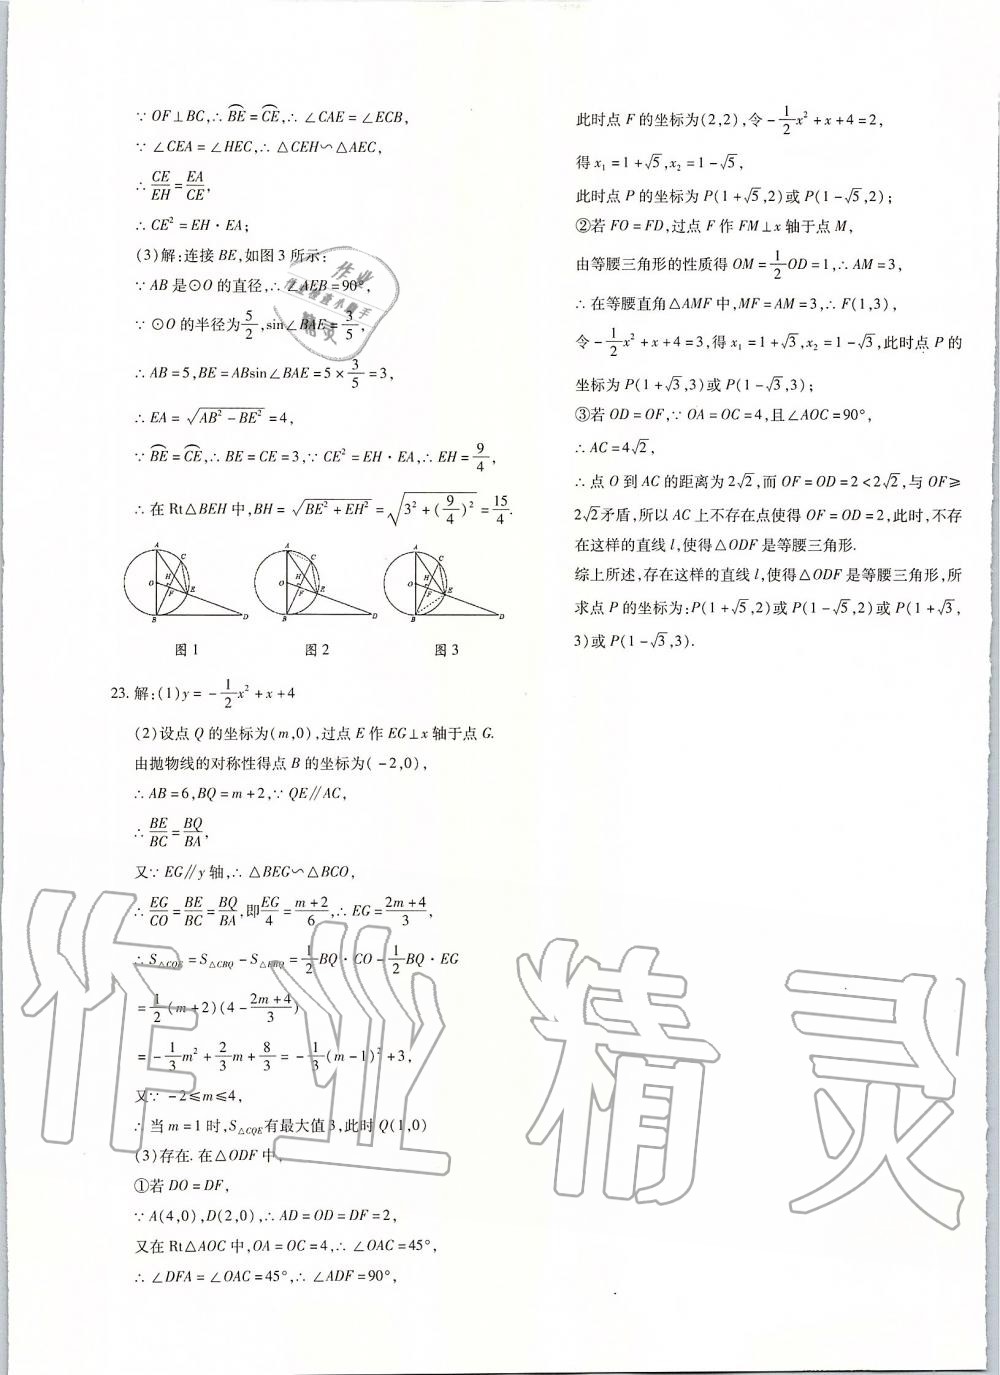 ∵ OF⊥BC,∴ BE⌢=CE⌢,∴ ∠CAE=∠ECB,
∵ ∠CEA=∠HEC,∴ △CEH∽△AEC,
∴ CE/EH=EA/CE,
∴ CE²=EH·EA;
(3)解:连接 BE,如图 3 所示:
∵ AB 是⊙O 的直径,∴ ∠AEB=90°,
∵ ⊙O 的半径为5/2,sin∠BAE=3/5,
∴ AB=5,BE=ABsin∠BAE=5×3/5=3,
∴ EA=√(AB²-BE²)=4,
∵ BE⌢=CE⌢,∴ BE=CE=3,∵ CE²=EH·EA,∴ EH=9/4,
∴ 在 Rt△BEH 中,BH=√(BE²+EH²)=√(3²+(9/4)²)=15/4.
A C H O F E B D
A C H O F E B D
A C H O F E B D
图 1 图 2 图 3
23. 解:(1)y=-1/2x²+x+4
(2)设点 Q 的坐标为(m,0),过点 E 作 EG⊥x 轴于点 G.
由抛物线的对称性得点 B 的坐标为(-2,0),
∴ AB=6,BQ=m+2,∵ QE∥AC,
∴ BE/BC=BQ/BA,
又∵ EG∥y 轴,∴ △BEG∽△BCO,
∴ EG/CO=BE/BC=BQ/BA,即EG/4=(m+2)/6,∴ EG=(2m+4)/3,
∴ S△CQE=S△CBQ-S△EBQ=1/2BQ·CO-1/2BQ·EG
=1/2(m+2)(4-(2m+4)/3)
=-1/3m²+2/3m+8/3=-1/3(m-1)²+3,
又∵ -2≤m≤4,
∴ 当 m=1 时,S△CQE有最大值 3,此时 Q(1,0)
(3)存在. 在△ODF 中,
①若 DO=DF,
∵ A(4,0),D(2,0),∴ AD=OD=DF=2,
又在 Rt△AOC 中,OA=OC=4,∴ ∠OAC=45°,
∴ ∠DFA=∠OAC=45°,∴ ∠ADF=90°,
此时点 F 的坐标为(2,2),令-1/2x²+x+4=2,
得 x₁=1+√5,x₂=1-√5,
此时点 P 的坐标为 P(1+√5,2)或 P(1-√5,2);
②若 FO=FD,过点 F 作 FM⊥x 轴于点 M,
由等腰三角形的性质得 OM=1/2OD=1,∴ AM=3,
∴ 在等腰直角△AMF 中,MF=AM=3,∴ F(1,3),
令-1/2x²+x+4=3,得 x₁=1+√3,x₂=1-√3,此时点 P 的
坐标为 P(1+√3,3)或 P(1-√3,3);
③若 OD=OF,∵ OA=OC=4,且∠AOC=90°,
∴ AC=4√2,
∴ 点 O 到 AC 的距离为 2√2,而 OF=OD=2<2√2,与 OF≥
2√2矛盾,所以 AC 上不存在点使得 OF=OD=2,此时,不存
在这样的直线 l,使得△ODF 是等腰三角形.
综上所述,存在这样的直线 l,使得△ODF 是等腰三角形,所
求点 P 的坐标为:P(1+√5,2)或 P(1-√5,2)或 P(1+√3,
3)或 P(1-√3,3).
作业
作业检查小帮手
精灵
作业精灵